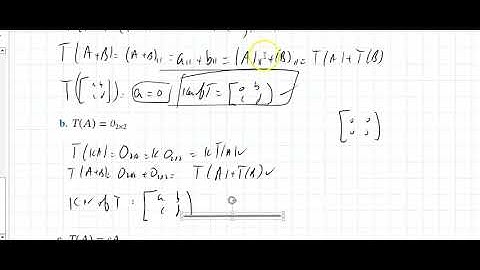 T(A+B) = (A+B)₁₁ = a₁₁ + b₁₁ = (A)₁₁ + (B)₁₁ = T(A) + T(B)
T([a b c d]) = a = 0 Ker of T = [a b c d]
b. T(A) = 0₂ₓ₂
[0 0 0 0]
T(kA) = 0₂ₓ₂ = k 0₂ₓ₂ = kT(A) ✓
T(A+B) = 0₂ₓ₂ + 0₂ₓ₂ = T(A) + T(B) ✓
Ker of T = [a b c d]